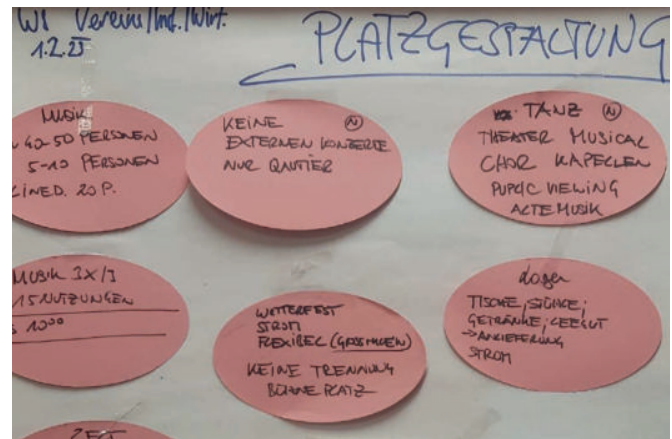 WS Vereine/Ind./Wirt.
1.2.25
PLATZGESTALTUNG
MUSIK
40-50 PERSONEN
5-10 PERSONEN
LINED. 20 P.
KEINE (N)
EXTERNEN KONZERTE
NUR QAUTIER
TANZ (N)
THEATER MUSICAL
CHOR KAPELLEN
PUPLIC VIEWING
ALTE MUSIK
MUSIK 3X/J
15 NUTZUNGEN
1000
WETTERFEST
STROM
FLEXIBEL
KEINE TRENNUNG
BÜHNE PLATZ
TISCHE, STÜHLE;
GETRÄNKE; LEEGUT
→ ANLIEFERUNG
STROM
ZELT